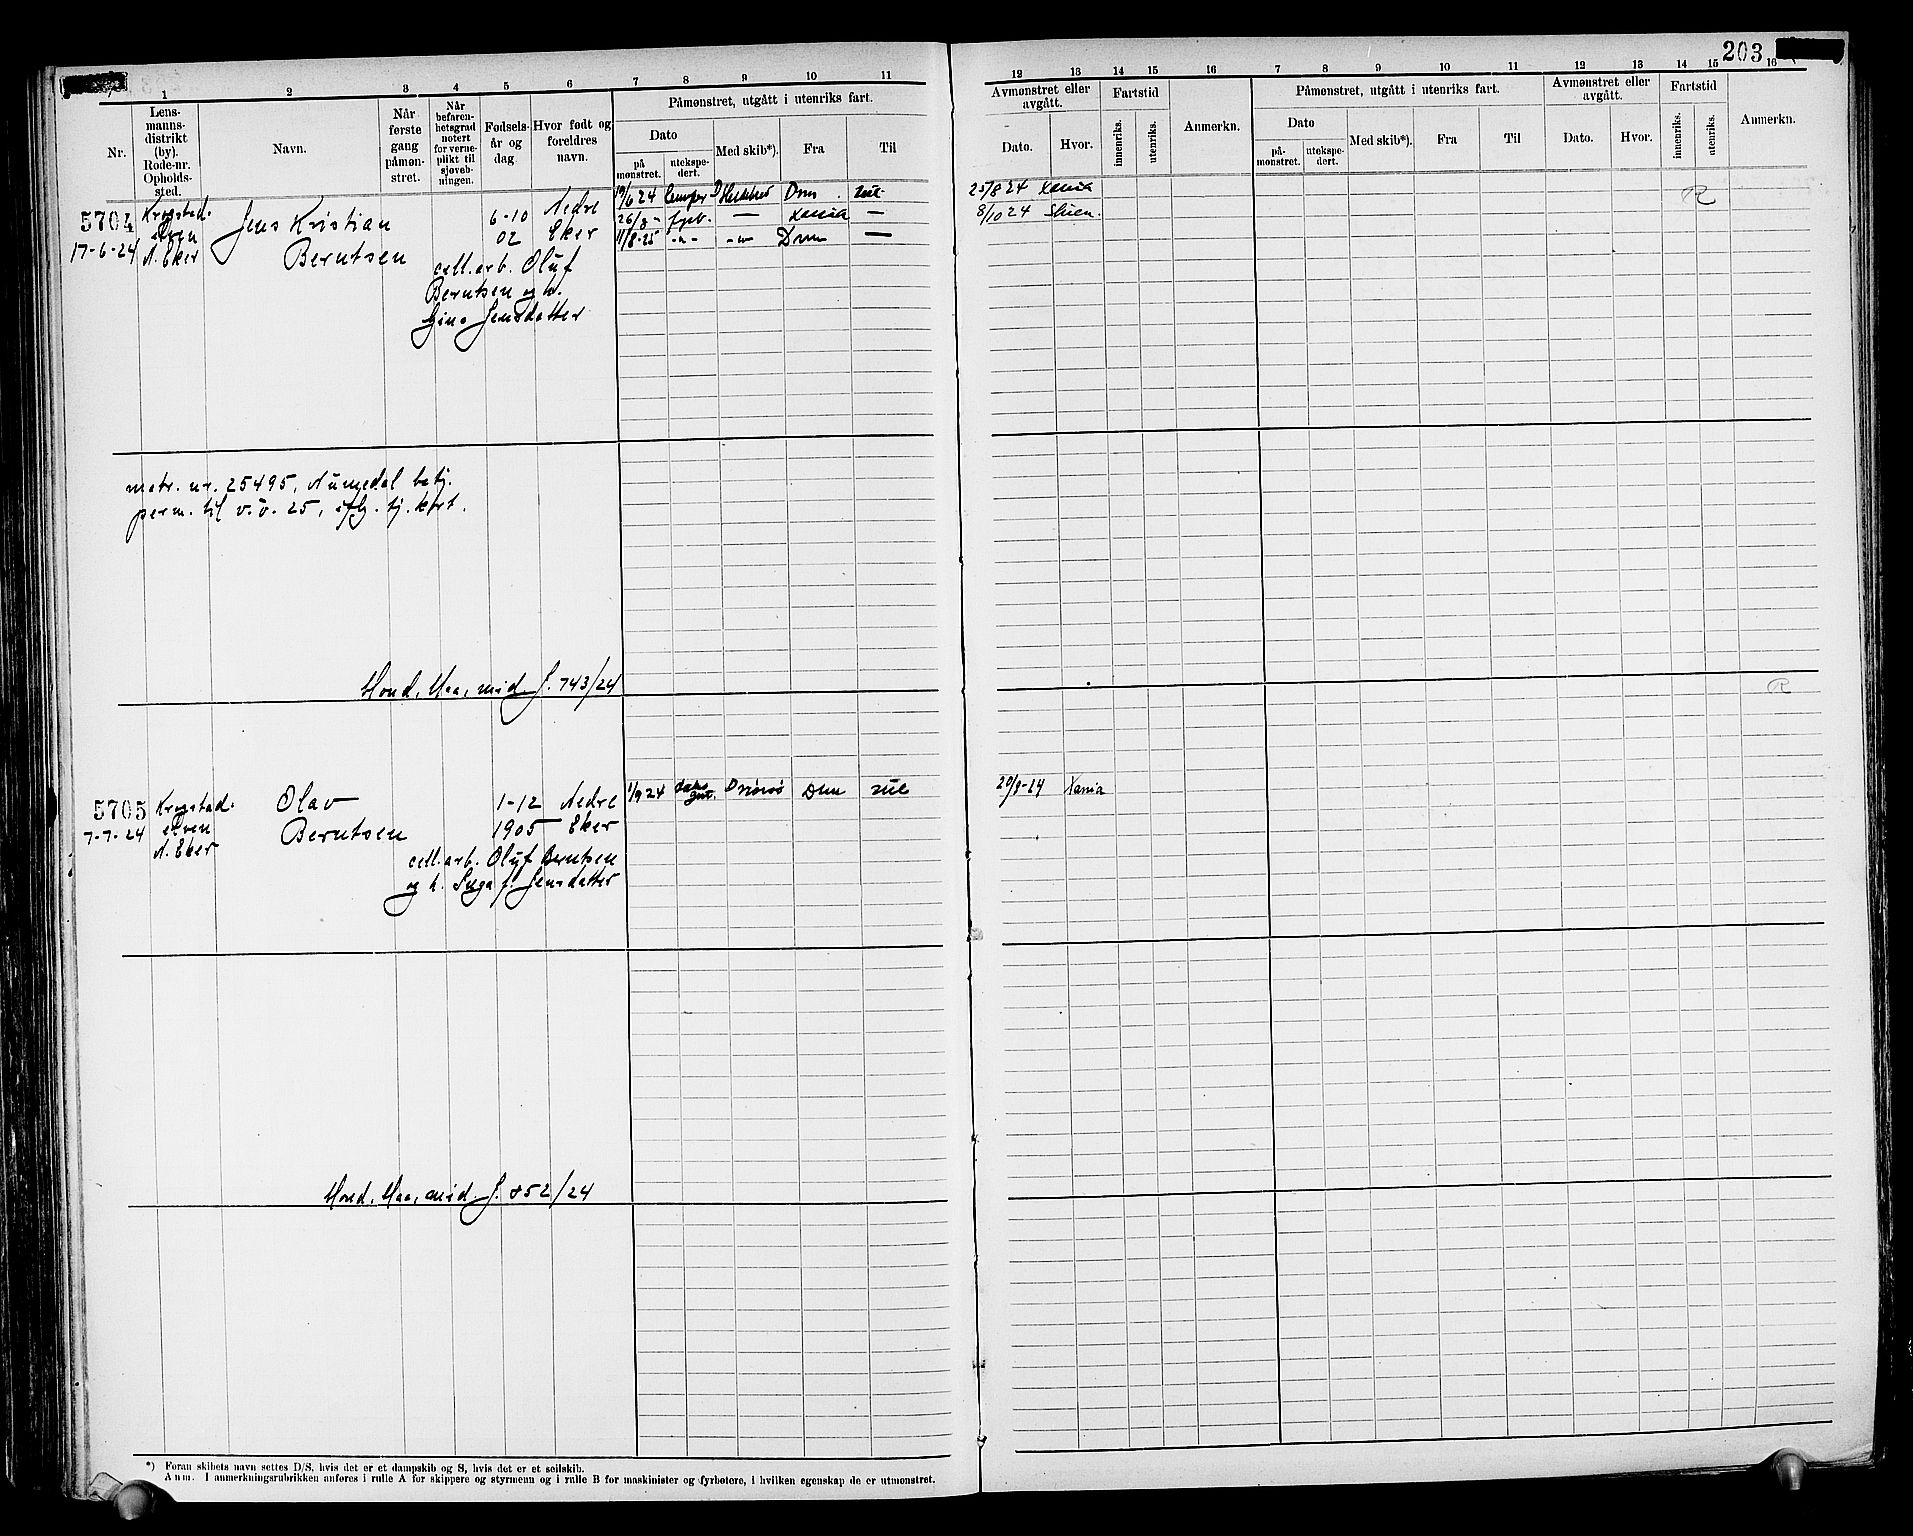 203
1 2 3 4 5 6 7 8 9 10 11
12 13 14 15 16 7 8 9 10 11 12 13 14 15 16
Nr.
Lens-
manns-
distrikt
(by).
Rode-nr.
Opholds-
sted.
Navn.
Når
første
gang
påmøn-
stret.
Når
befaren-
hetsgrad
notert
for verne-
plikt til
sjøveb-
ningen.
Fødsels-
år og
dag.
Hvor født og
foreldres
navn.
Påmønstret, utgått i utenriks fart.
Dato
på
mønstret.
utekspe-
dert.
Med skib*).
Fra
Til
Avmønstret eller
avgått.
Dato.
Hvor.
Fartstid
innenriks.
utenriks.
Anmerkn.
Påmønstret, utgått i utenriks fart.
Dato
på-
mønstret.
utekspe-
dert.
Med skib*).
Fra
Til
Avmønstret eller
avgått.
Dato.
Hvor.
Fartstid
innenriks.
utenriks.
Anmerkn.
5704
17-6-24
Krogstad-
elven
N. Eker
Jens Kristian
Berntsen
6-10
02
Nedre
Eker
cell.arb. Oluf
Berntsen og h.
Gina Jensdatter
19/6 24 lemper D Drm
26/8 - fyrb. — Xania —
11/8-25 -"- -"- Drm —
25/8 24 Xania
8/10 24 Skien.
R
matr. nr. 25495, Numedal batj.
perm. til v.ö. 25, iflg. tj. kort.
Hond. Maa, mid. J. 743/24
R
5705
7-7-24
Krogstad-
elven
N. Eker
Olav
Berntsen
1-12
1905
Nedre
Eker
cell.arb. Oluf Berntsen
og h. Inga f. Jensdatter
1/9 24 Drm
20/9-24 Xania
Hond. Maa, mid. J. 852/24
*) Foran skibets navn settes D/S, hvis det er et dampskib og S, hvis det er et seilskib.
Anm. I anmerkningsrubrikken anføres i rulle A for skippere og styrmenn og i rulle B for maskinister og fyrbøtere, i hvilken egenskap de er utmønstret.